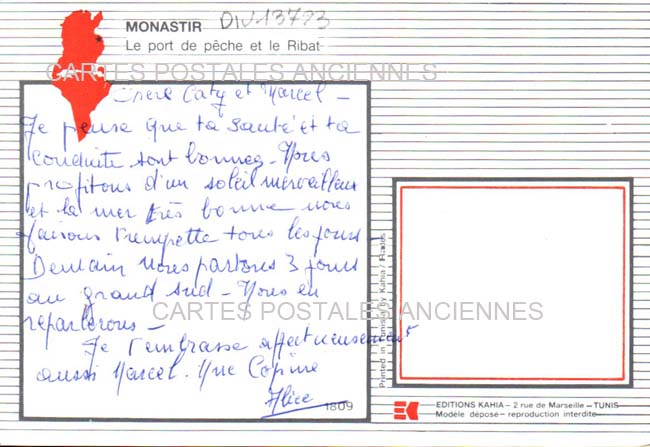 MONASTIR DIV13793
Le port de pêche et le Ribat
CARTES POSTALES ANCIENNES
Chère Caty et Marcel -
Je pense que ta santé et ta
conduite sont bonnes - Nous
profitons d'un soleil merveilleux
et la mer très bonne nous
faisons trempette tous les jours -
Demain nous partons 3 jours
au grand sud - Nous en
reparlerons -
CARTES POSTALES ANCIENNES
Je t'embrasse affectueusement
aussi Marcel. Une Copine
Alice
1809
Printed in Tunisia by Kahia / Rades
EDITIONS KAHIA - 2 rue de Marseille - TUNIS
Modèle déposé - reproduction interdite